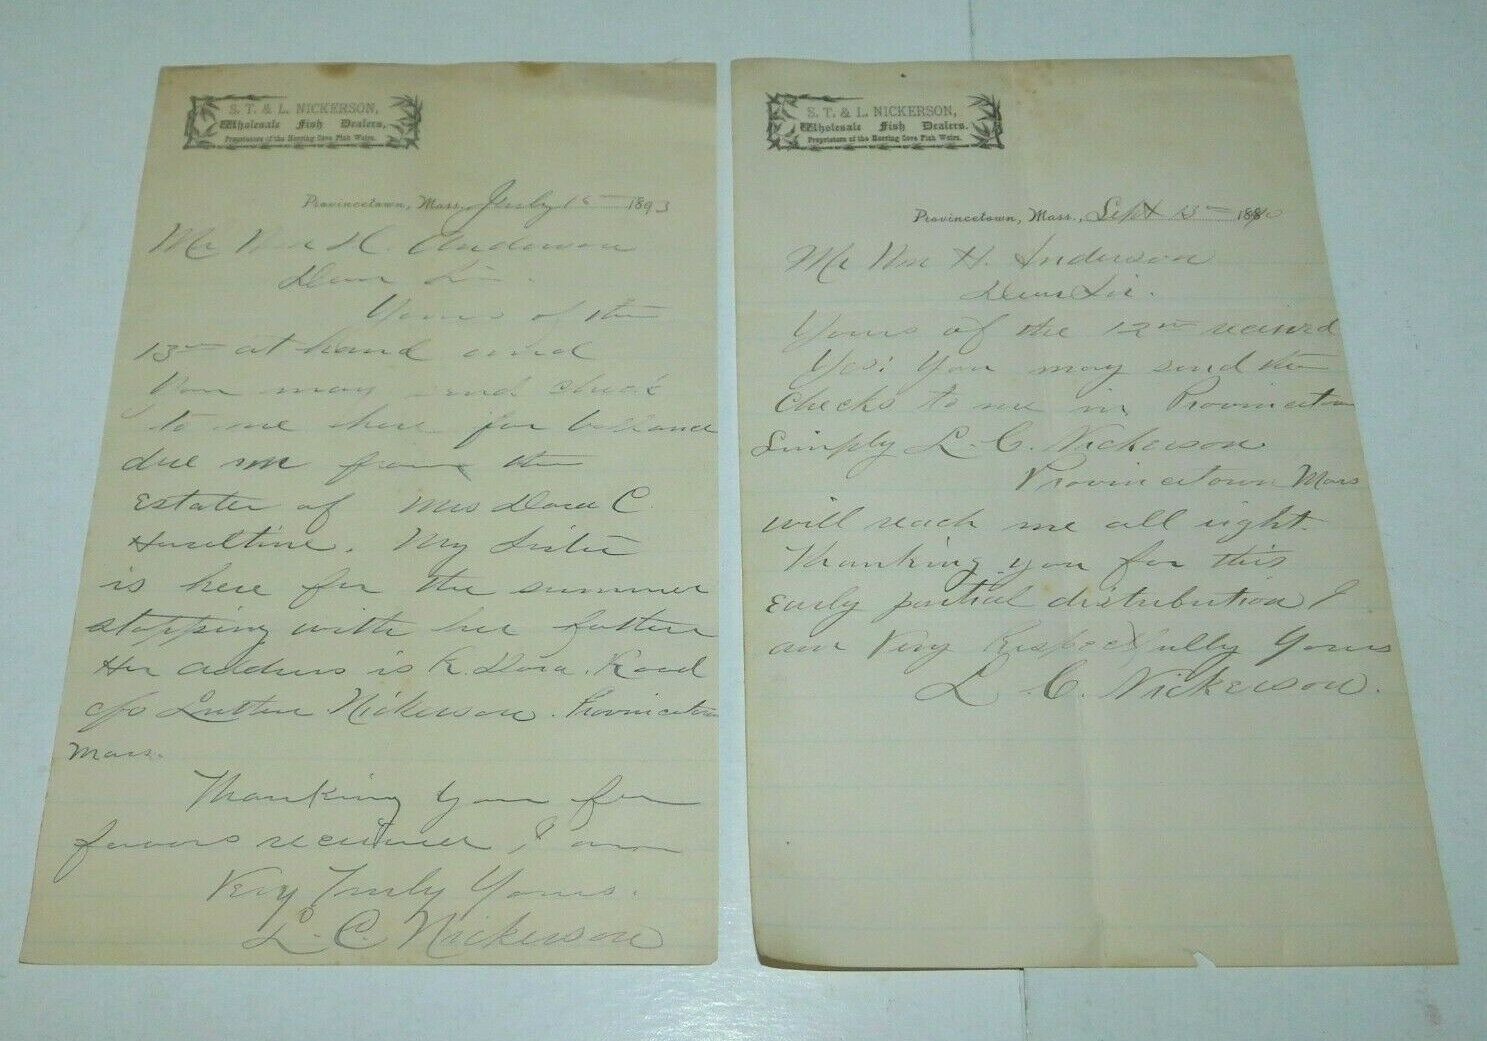 S. T. & L. NICKERSON,
Wholesale Fish Dealers,
Proprietors of the Herring Cove Fish Weirs.
Provincetown, Mass., July 15 1893
Mr Wm H. Anderson
Dear Sir.
Yours of the
13th at hand and
You may send check
to me here for ballance
due me from the
Estate of Mrs Dora C.
Haseltine. My Sister
is here for the summer
stopping with her father
Her address is R. Dora. Rood
c/o Luther Nickerson. Provincetown
Mass.
Thanking you for
favors received, I am
Very Truly Yours.
L. C. Nickerson
S. T. & L. NICKERSON,
Wholesale Fish Dealers.
Proprietors of the Herring Cove Fish Weirs.
Provincetown, Mass., Sept 13th 1890
Mr Wm H. Anderson
Dear Sir.
Yours of the 12th received
Yes! You may send the
Checks to me in Provincetown
Simply L. C. Nickerson
Provincetown Mass
will reach me all right.
Thanking you for this
early partial distribution I
am Very Respectfully Yours
L. C. Nickerson.